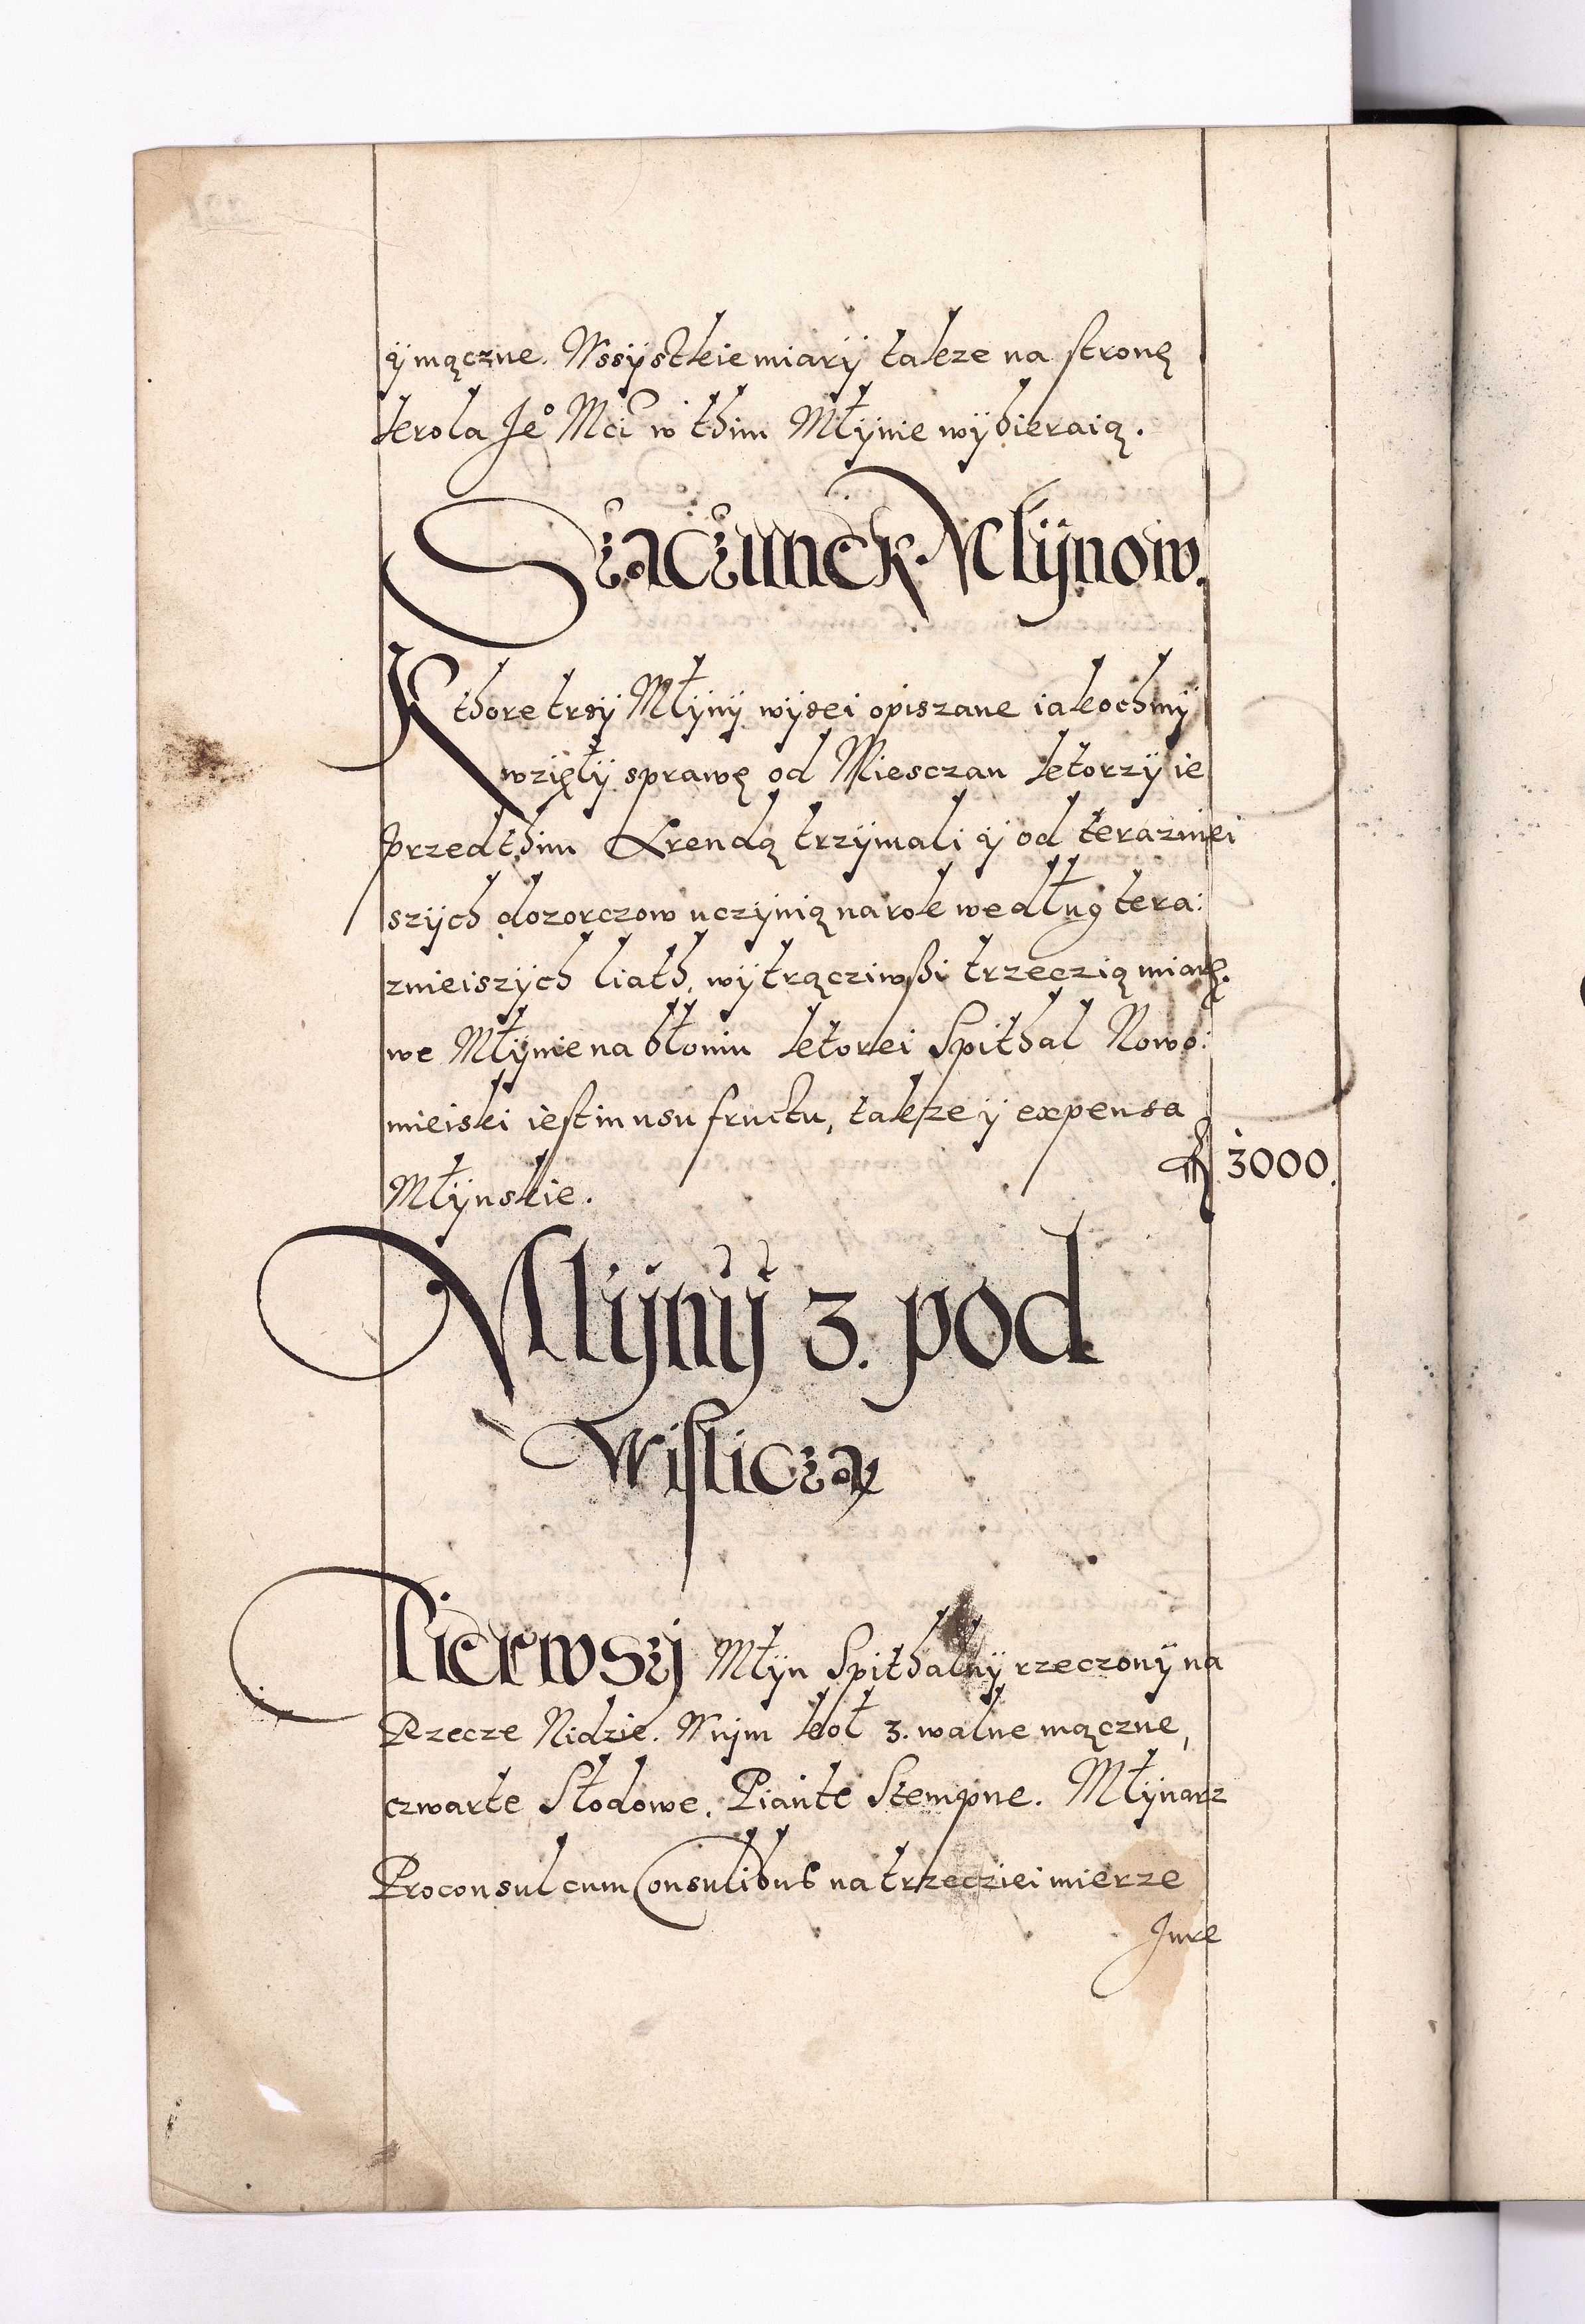 ÿ mączne. Wssÿstkie miarÿ takze na stronę
krola Jeº Mci w thim Młÿnie wÿbieraią.
Szaczunek Mlÿnow.
Kthore trzÿ Młÿnÿ wÿsei opiszane iakochmÿ
wzięłÿ sprawę od Miesczan ktorzÿ ie
przed thim Arendą trzÿmali ÿ od terazniei
szÿch dozorczow uczÿnią na rok według tera:
znieiszÿch liath, wÿtrącziwßi trzeczią miarę.
we Młÿnie na błoniu ktorei Spithal Nowo:
mieiski iest in usu fructu, takze ÿ expensa
Młÿnskie. fl 3000.
Mlÿnÿ 3. pod
Wisliczą
Pierwszÿ Młÿn Spithalnÿ rzeczonÿ na
Rzecze Nidzie. W nim koł 3. walne mączne,
czwarte Słodowe. Piante Stempne. Młÿnarz
Proconsul cum Consulibus na trzecziei mierze
Jure